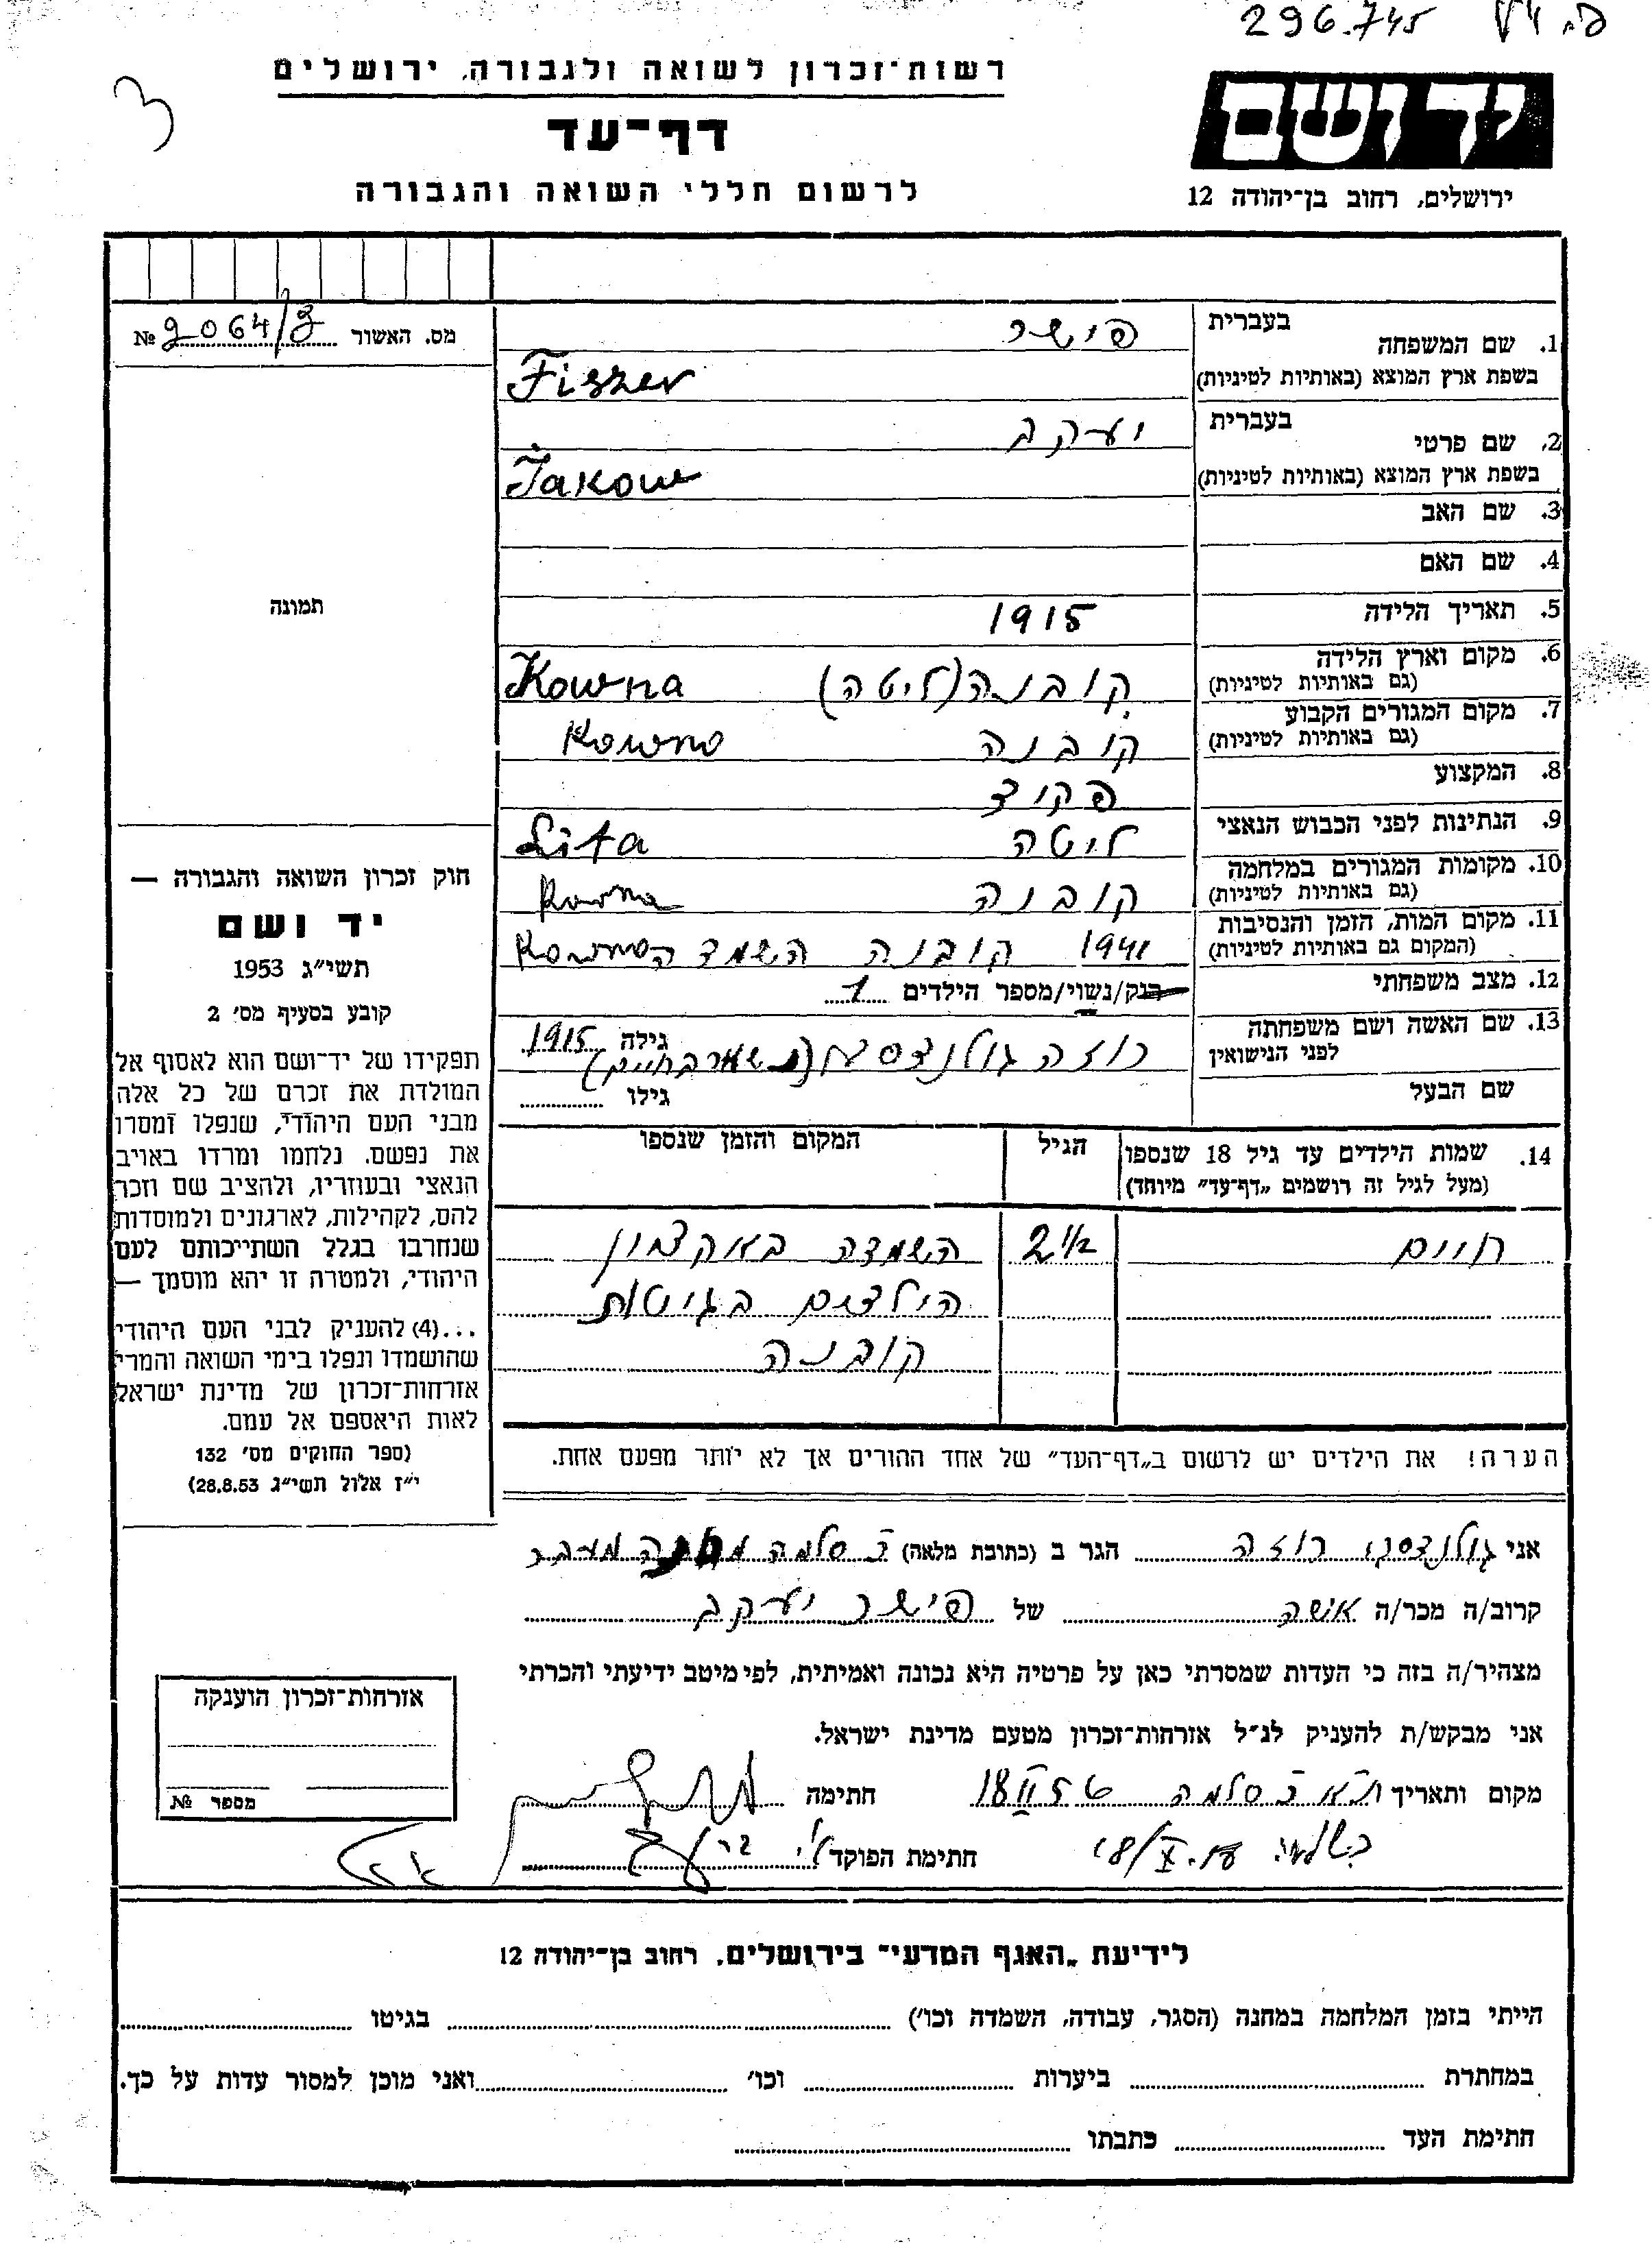 296.745
3
רשות-זכרון לשואה ולגבורה, ירושלים
דף-עד
לרשום חללי השואה והגבורה
יד ושם
ירושלים, רחוב בן-יהודה 12
מס. האשור 2064/3 №
תמונה
חוק זכרון השואה והגבורה —
יד ושם
תשי״ג 1953
קובע בסעיף מס׳ 2
תפקידו של יד-ושם הוא לאסוף אל
המולדת את זכרם של כל אלה
מבני העם היהודי, שנפלו ומסרו
את נפשם. נלחמו ומרדו באויב
הנאצי ובעוזריו, ולהציב שם וזכר
להם, לקהילות, לארגונים ולמוסדות
שנחרבו בגלל השתייכותם לעם
היהודי, ולמטרה זו יהא מוסמך —
...(4) להעניק לבני העם היהודי
שהושמדו ונפלו בימי השואה והמרי
אזרחות-זכרון של מדינת ישראל
לאות היאספם אל עמם.
(ספר החוקים מס׳ 132
י״ז אלול תשי״ג 28.8.53)
1. שם המשפחה בעברית פישר
בשפת ארץ המוצא (באותיות לטיניות) Fiszer
2. שם פרטי בעברית יעקב
בשפת ארץ המוצא (באותיות לטיניות) Jakow
3. שם האב
4. שם האם
5. תאריך הלידה 1915
6. מקום וארץ הלידה (גם באותיות לטיניות) קובנה (ליטה) Kowna
7. מקום המגורים הקבוע (גם באותיות לטיניות) קובנה Kowno
8. המקצוע פקיד
9. הנתינות לפני הכבוש הנאצי ליטה Lita
10. מקומות המגורים במלחמה (גם באותיות לטיניות) קובנה Kowna
11. מקום המות, הזמן והנסיבות (המקום גם באותיות לטיניות) 1941 קובנה השמדה Kowno
12. מצב משפחתי רווק/נשוי/מספר הילדים 1
13. שם האשה ושם משפחתה לפני הנישואין רוזה גולנדסקי (נשארה בחיים) גילה 1915
שם הבעל גילו
14. שמות הילדים עד גיל 18 שנספו (מעל לגיל זה רושמים „דף-עד״ מיוחד) הגיל המקום והזמן שנספו
חיים 2½ השמדה באקציון
הילדים בגיטות
קובנה
הערה! את הילדים יש לרשום ב„דף-העד״ של אחד ההורים אך לא יותר מפעם אחת.
אני גולנדסקי רוזה הגר ב (כתובת מלאה) כ סלמה מעבר
קרוב/ה מכר/ה אשה של פישר יעקב
מצהיר/ה בזה כי העדות שמסרתי כאן על פרטיה היא נכונה ואמיתית, לפי מיטב ידיעתי והכרתי
אני מבקש/ת להעניק לנ״ל אזרחות-זכרון מטעם מדינת ישראל.
מקום ותאריך ת״א כ סלמה 18 II 56 חתימה
חתימת הפוקד
אזרחות-זכרון הוענקה
מספר №
לידיעת „האגף המדעי״ בירושלים, רחוב בן-יהודה 12
הייתי בזמן המלחמה במחנה (הסגר, עבודה, השמדה וכו׳) בגיטו
במחתרת ביערות וכו׳ ואני מוכן למסור עדות על כך.
חתימת העד כתבתו